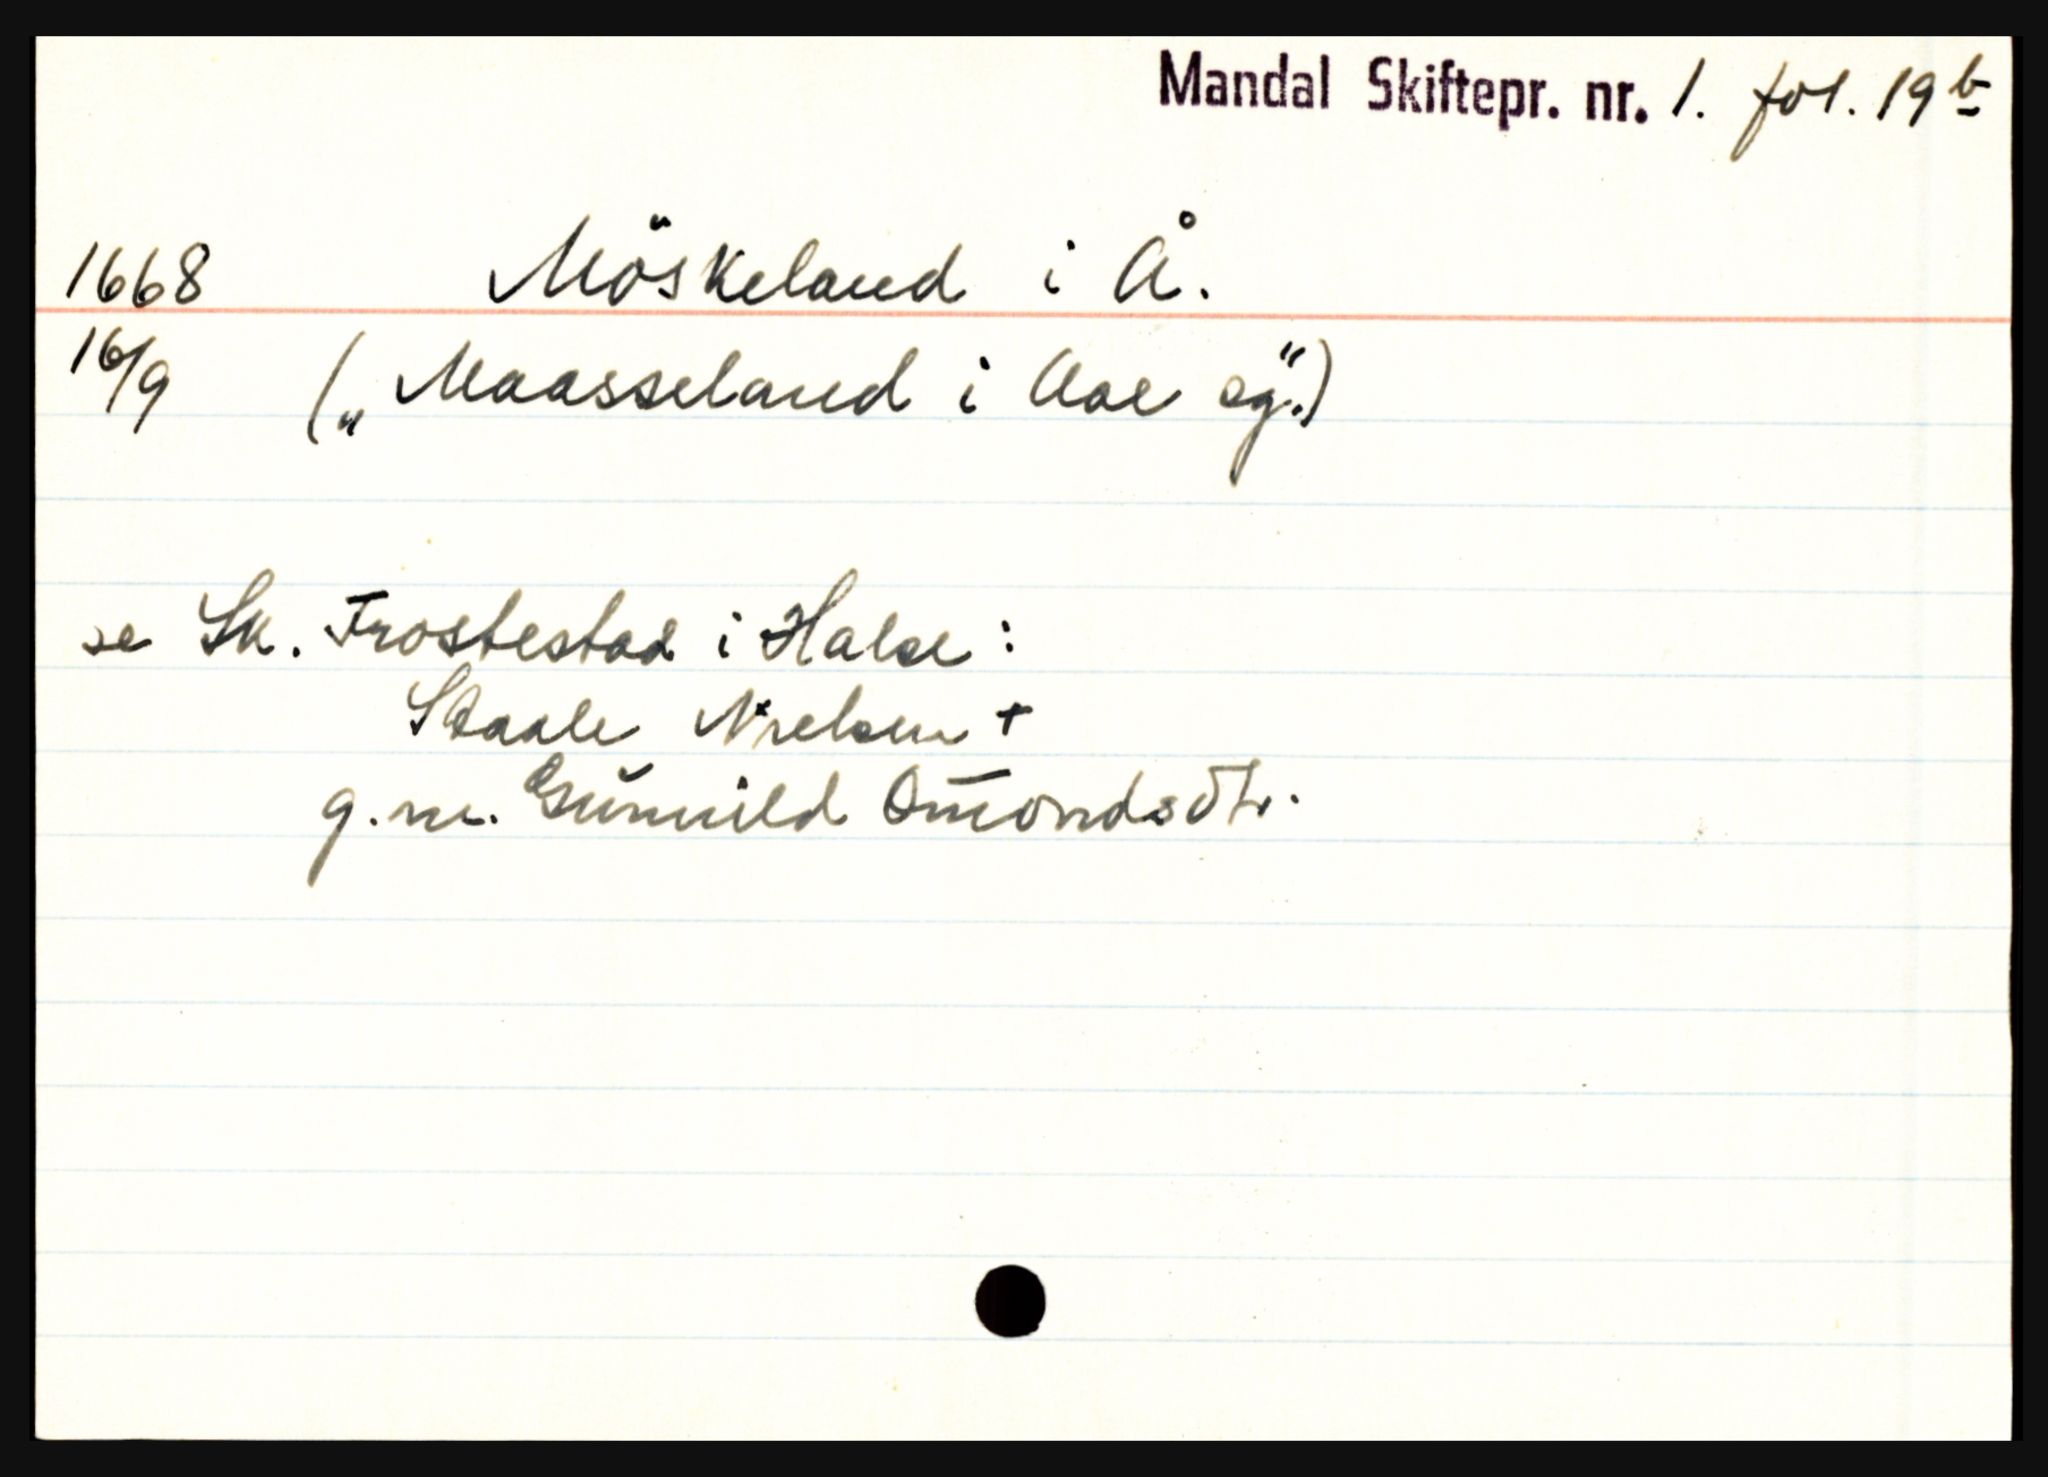 Mandal Skiftepr. nr. 1. fol. 19 b
1668 Möskeland i Å.
16/9 („Maasseland i Aae sg".)
se Sk. Frostestad i Halse:
Staale Nielsen +
g.m. Gunnild Om̄ondsdtr.